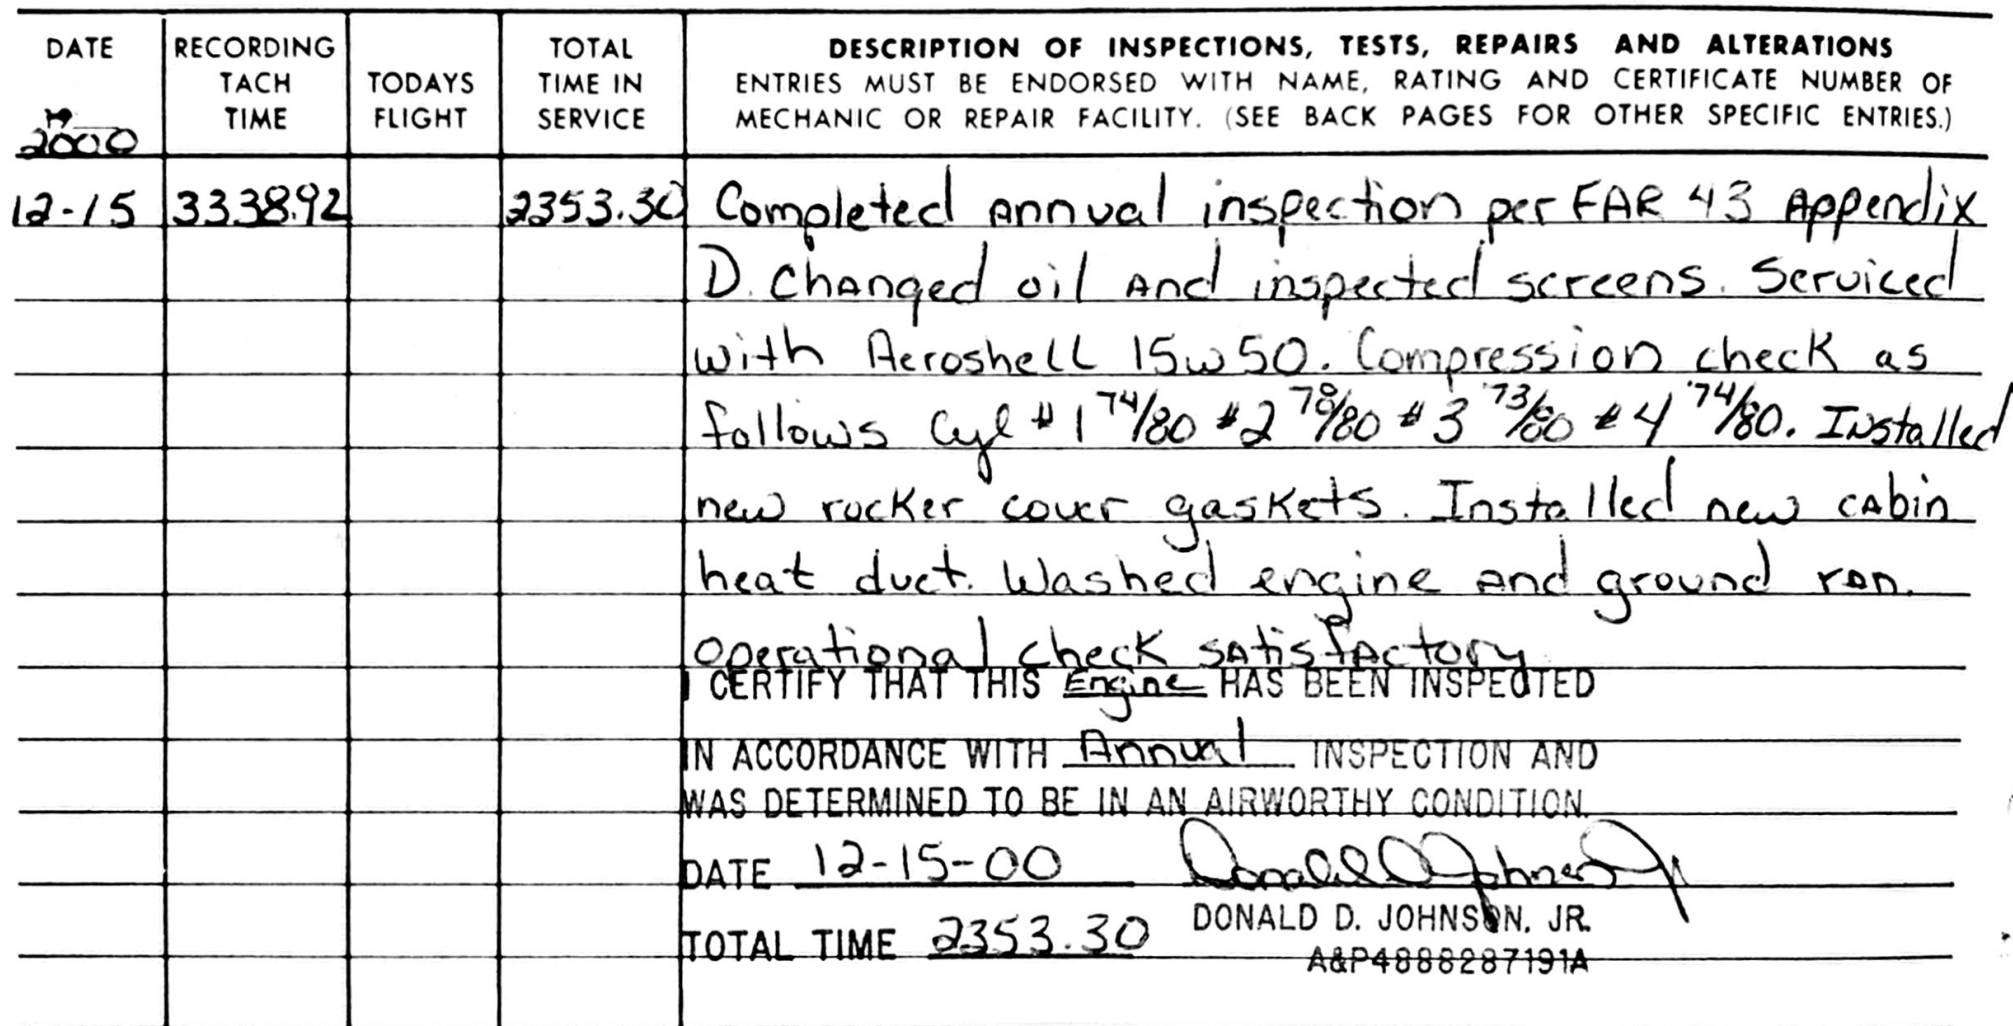 DATE RECORDING TACH TIME TODAYS FLIGHT TOTAL TIME IN SERVICE
DESCRIPTION OF INSPECTIONS, TESTS, REPAIRS AND ALTERATIONS
ENTRIES MUST BE ENDORSED WITH NAME, RATING AND CERTIFICATE NUMBER OF
MECHANIC OR REPAIR FACILITY. (SEE BACK PAGES FOR OTHER SPECIFIC ENTRIES.)
2000
12-15 3338.92 2353.30 Completed Annual inspection per FAR 43 Appendix
D. Changed oil And inspected screens. Serviced
with Aeroshell 15w50. Compression check as
follows Cyl #1 74/80 #2 78/80 #3 73/80 #4 74/80. Installed
new rocker cover gaskets. Installed new cabin
heat duct. Washed engine and ground ran.
operational check satisfactory
I CERTIFY THAT THIS Engine HAS BEEN INSPECTED
IN ACCORDANCE WITH Annual INSPECTION AND
WAS DETERMINED TO BE IN AN AIRWORTHY CONDITION.
DATE 12-15-00 Donald D Johnson Jr
DONALD D. JOHNSON, JR.
TOTAL TIME 2353.30
A&P4888287191A